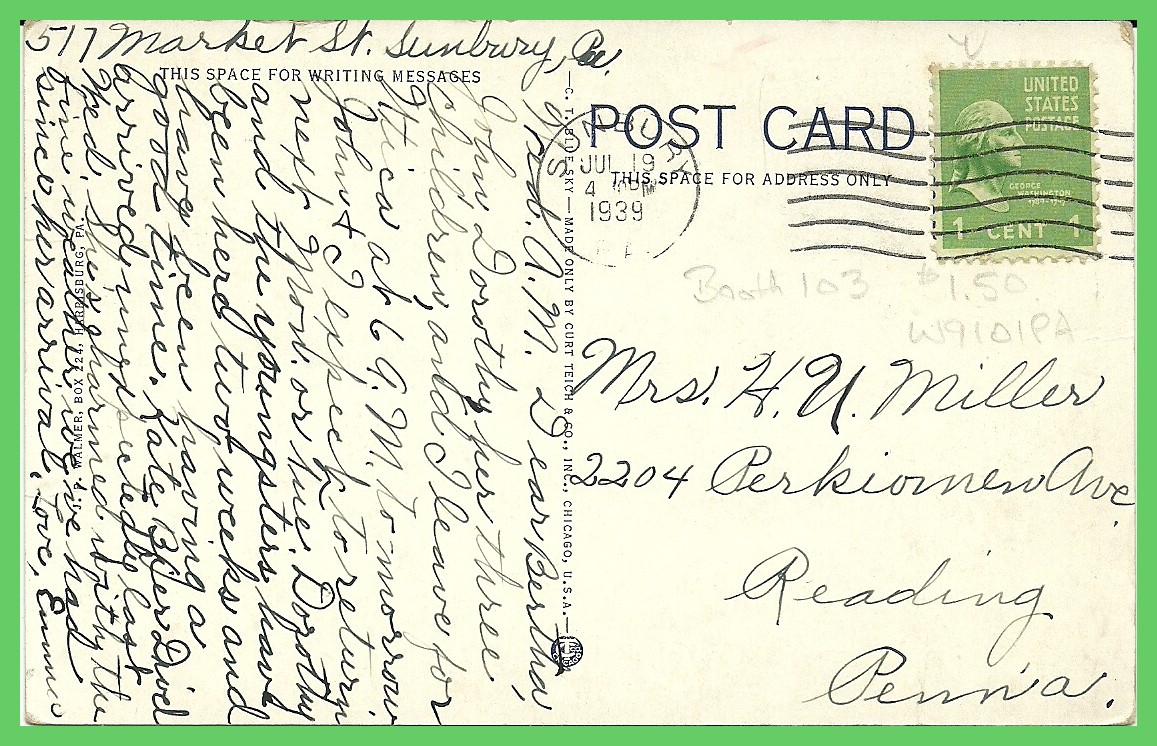 517 Market St. Sunbury, Pa.
THIS SPACE FOR WRITING MESSAGES
A.M. Dear Bertha,
John, Dorothy, her three
children, and I leave for
at 6 A.M. to-morrow
John & I expect to return
next Mon. or Tue. Dorothy
and the youngsters have
been here two weeks and
have been having a
good time. Kate
arrived unexpectedly last
Wed. She's charmed with the
fine weather we've had
since her arrival. Love, Emma
J. P. WALMER, BOX 224, HARRISBURG, PA.
C. T. BLUE SKY — MADE ONLY BY CURT TEICH & CO., INC., CHICAGO, U.S.A.
POST CARD
THIS SPACE FOR ADDRESS ONLY
SUNBURY
JUL 19
4 PM
1939
PA
UNITED
STATES
POSTAGE
GEORGE
WASHINGTON
1 CENT 1
Booth 103 $1.50
W9101PA
Mrs. H. U. Miller
2204 Perkiomen Ave.
Reading
Penn'a.